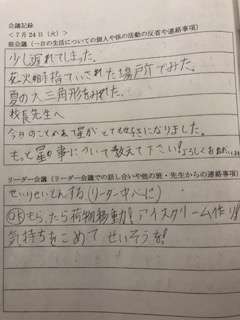 会議記録
<7月24日(火)>
班会議(一日の生活についての個人や係の活動の反省や連絡事項)
少し遅れてしまった。
花火の時指ていされた場所でみた。
夏の大三角形をみれた。
校長先生へ
今日のこのお星がとても好きになりました。
もっと星の事について教えて下さい!よろしくおねがい
リーダー会議(リーダー会議での話し合いや他の班・先生からの連絡事項)
せいりせいとんする(リーダー中心に)
OKもらったら荷物移動!アイスクリーム作り!
気持ちをこめてせいそうを!